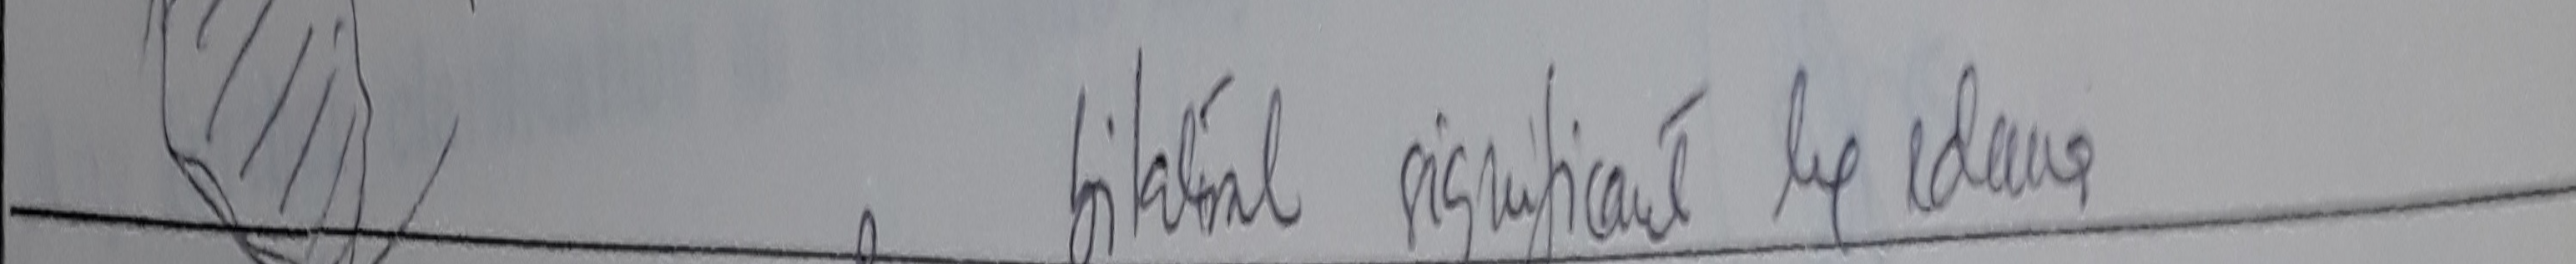 bilateral significant leg edema